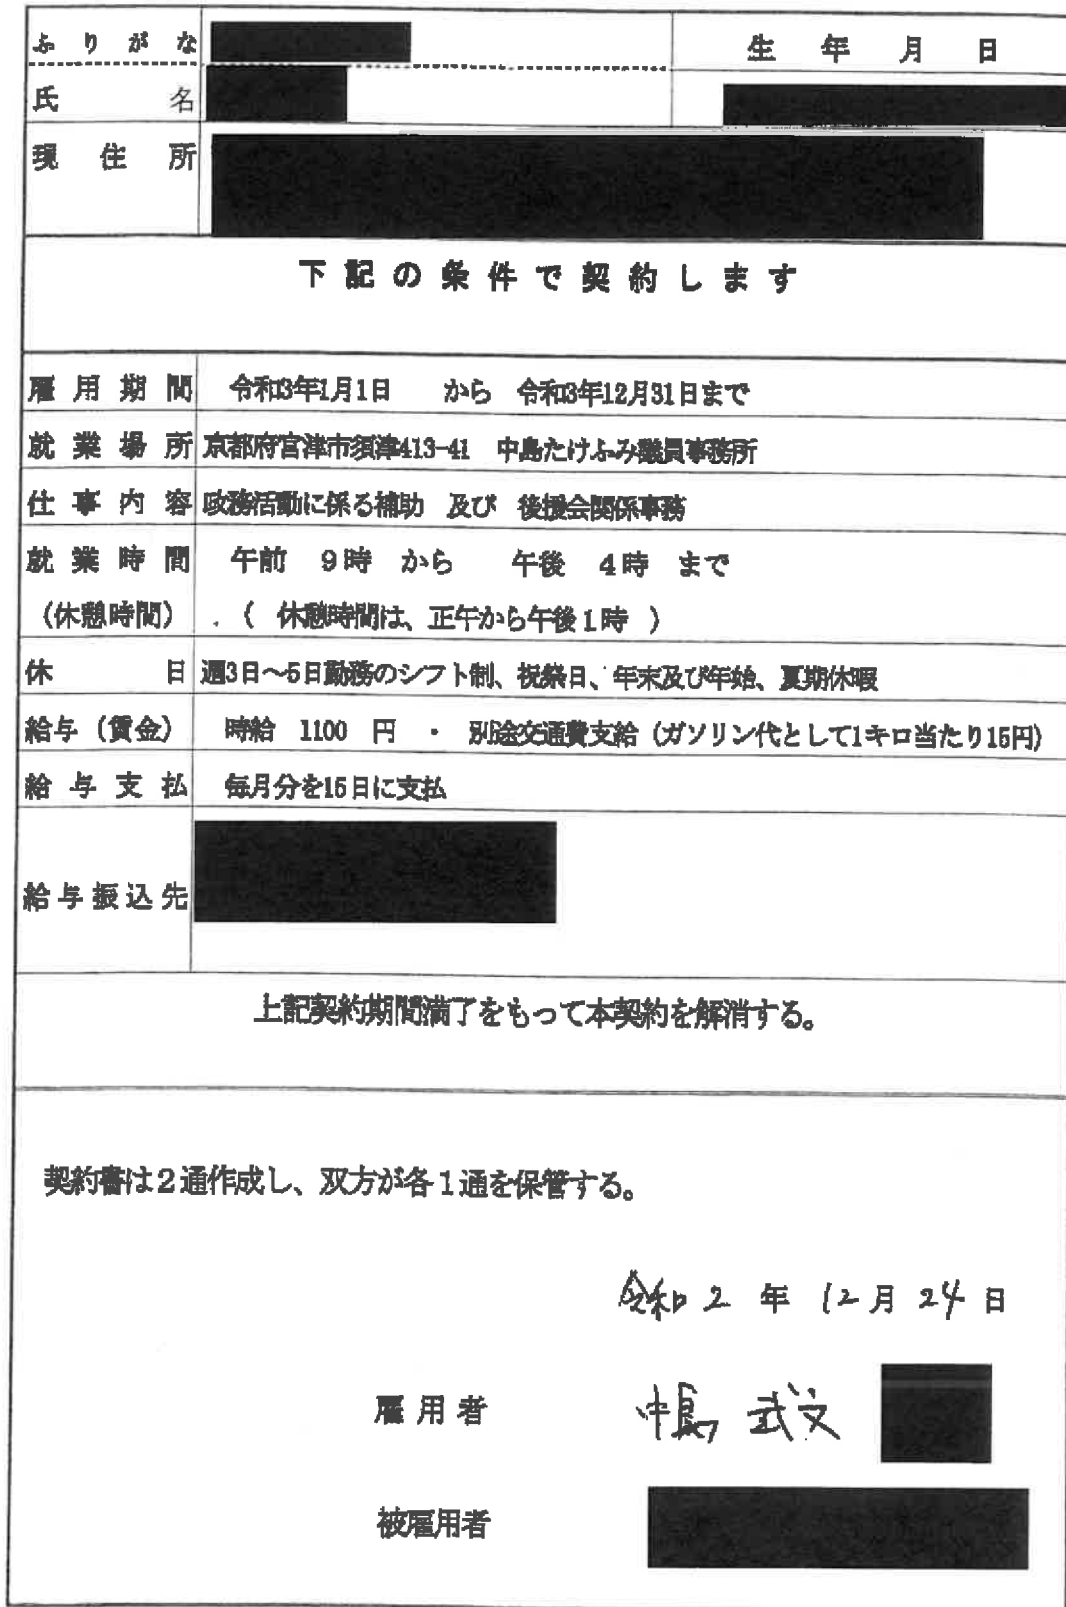 ふりがな
生年月日
氏名
現住所
下記の条件で契約します
雇用期間 令和3年1月1日 から 令和3年12月31日まで
就業場所 京都府宮津市須津413-41 中島たけふみ議員事務所
仕事内容 政務活動に係る補助 及び 後援会関係事務
就業時間 午前 9時 から 午後 4時 まで
(休憩時間) ( 休憩時間は、正午から午後1時 )
休日 週3日～5日勤務のシフト制、祝祭日、年末及び年始、夏期休暇
給与(賃金) 時給 1100 円 ・ 別途交通費支給(ガソリン代として1キロ当たり15円)
給与支払 毎月分を15日に支払
給与振込先
上記契約期間満了をもって本契約を解消する。
契約書は2通作成し、双方が各1通を保管する。
令和2年12月24日
雇用者 中島 武文
被雇用者